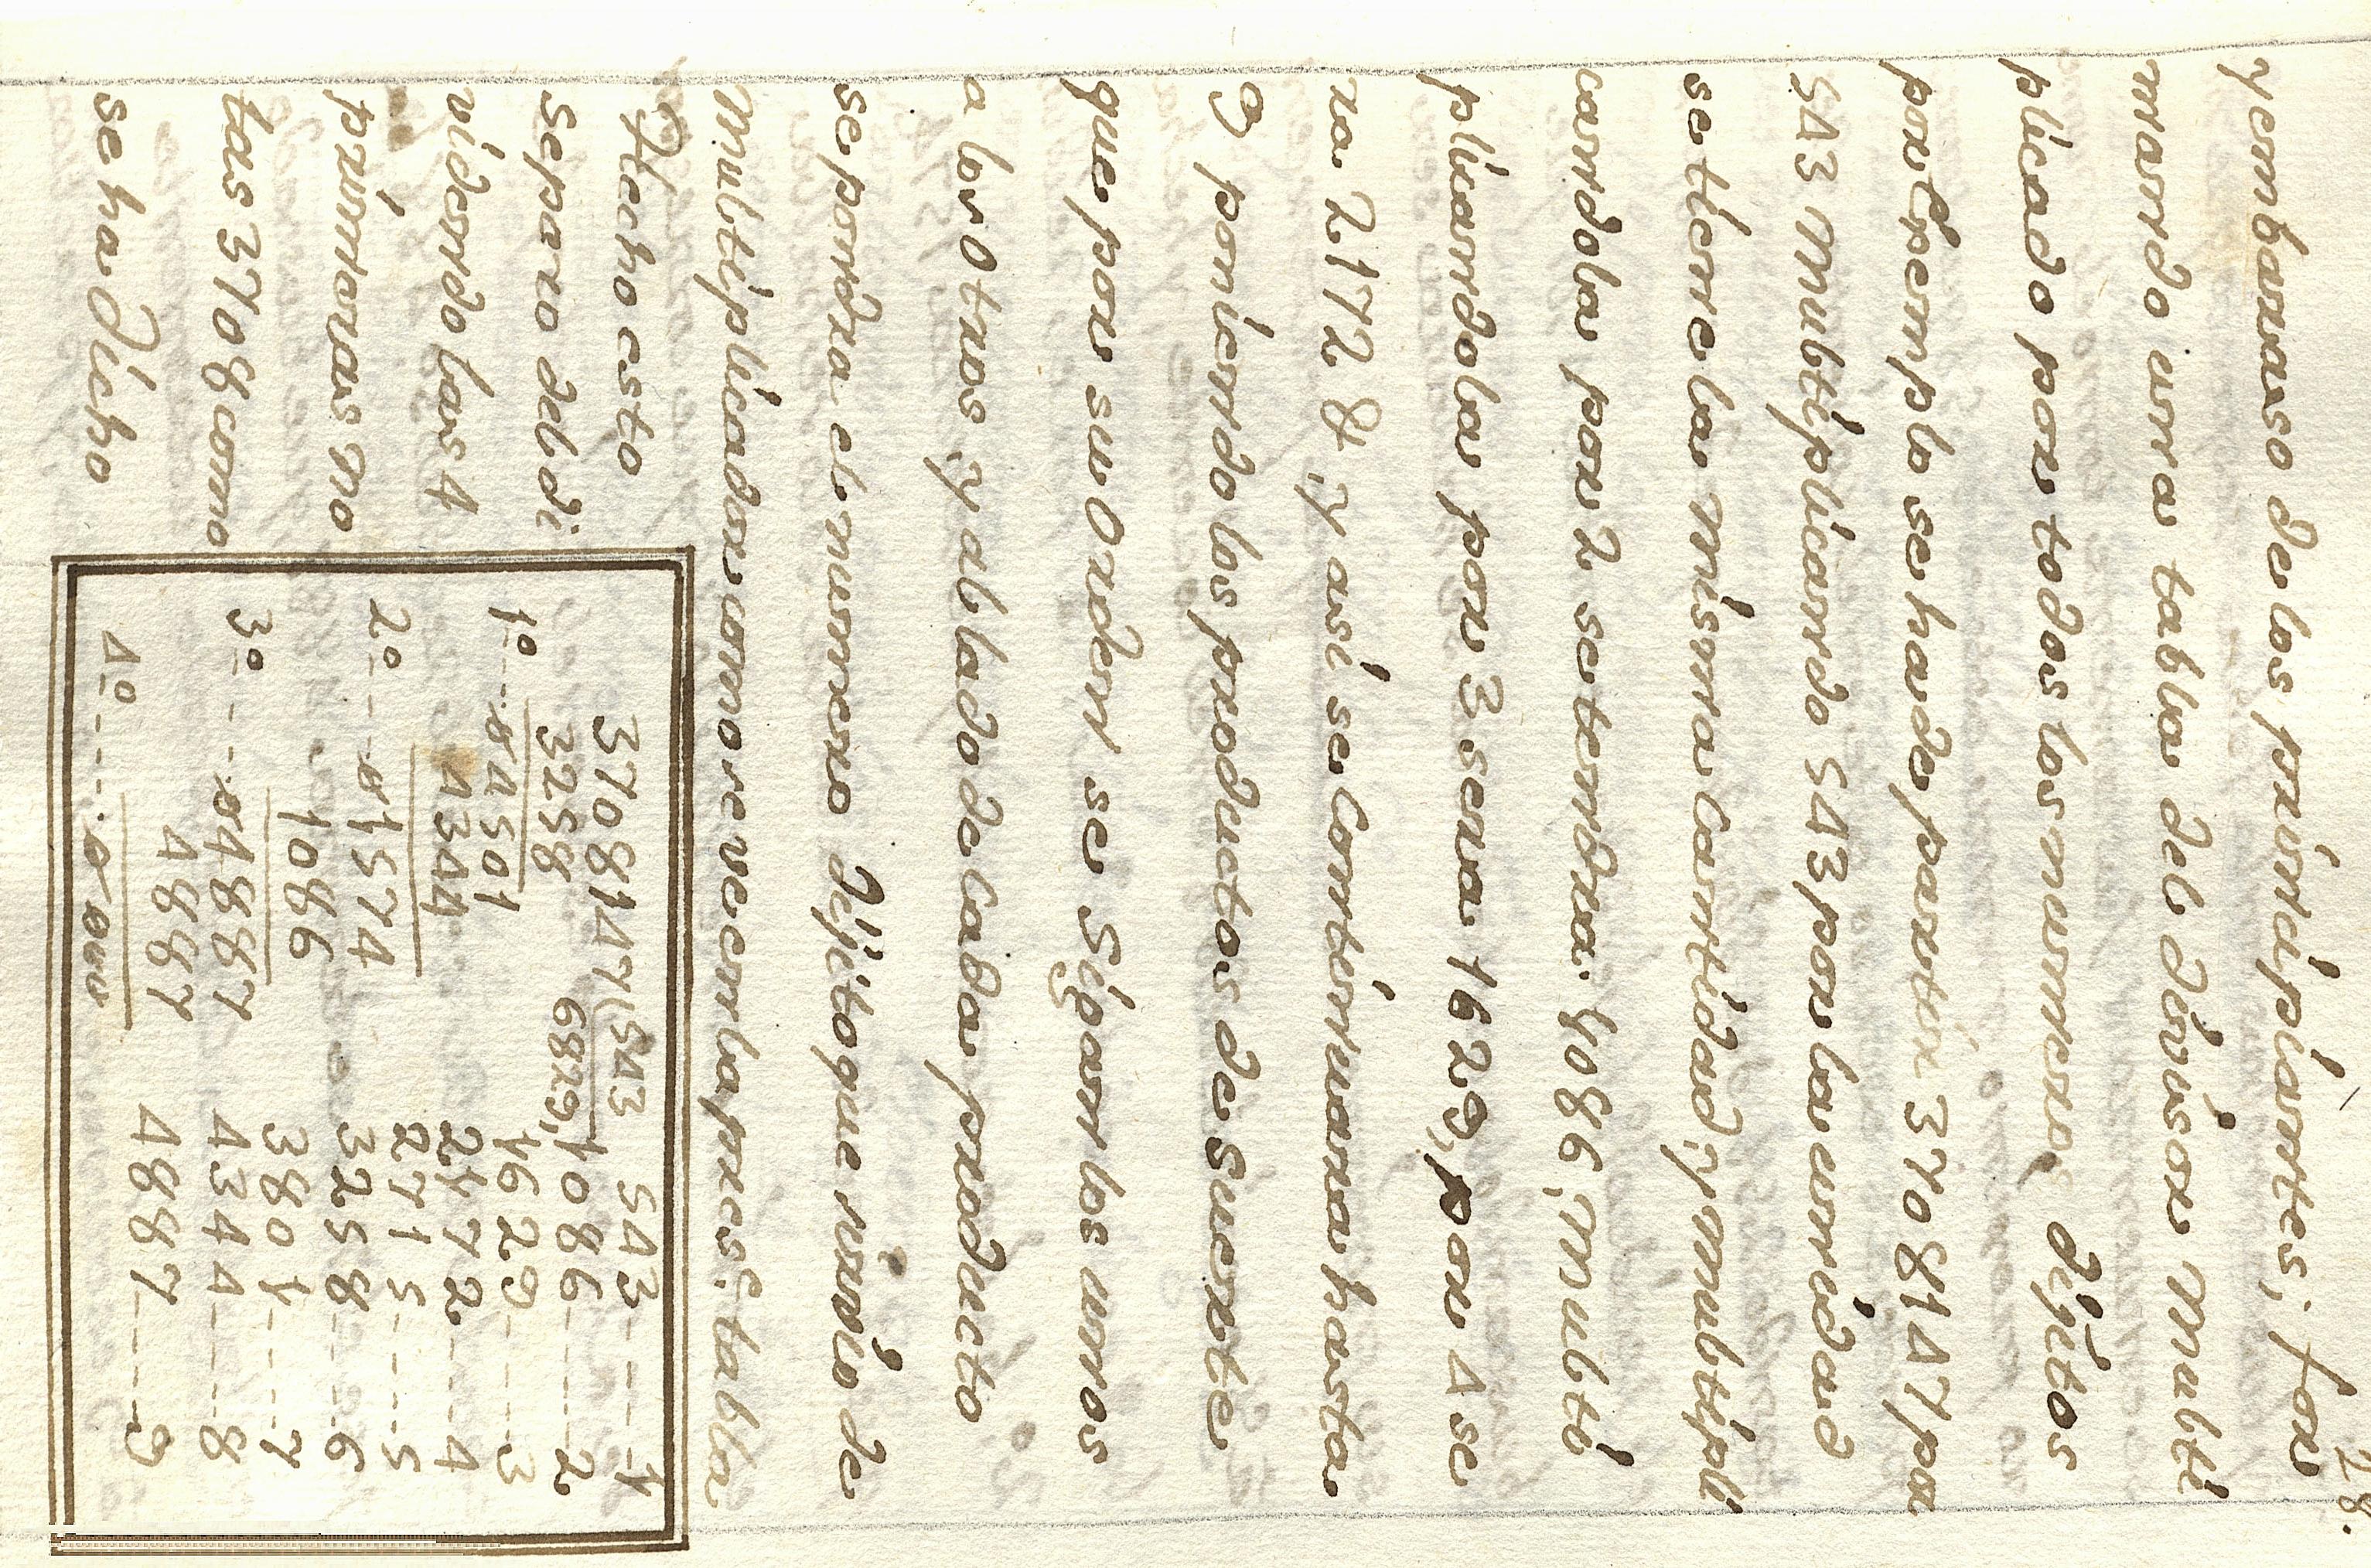 28.
yembaraso de los prinsipiantes; for
mando una tabla del divisor multi
plicado por todos los numeros dijitos
por exemplo se ha de partir 3708147 por
543 multiplicando 543 por la unidad
se tiene la misma Cantidad, y multipli
candola por 2 se tendra. 1086, multi
plicandola por 3 sera 1629, por 4 se
ra 2172 &, y asi se Continuara hasta
9 poniendo los productos de Suerte
que por su Orden se Sigan los unos
a los Otros, y al lado de Cada producto
se pondra el numero dijito que sirvio de
multiplicador como se ve en la pres.te tabla
Hecho esto
separo del di
videndo las 4
primeras no
tas 3708 como
se ha dicho
3708147(543 543 ---- 1
3258 6829, 1086 ---- 2
1º ---- 04501 1629 ---- 3
4344 2172 ---- 4
2º ---- 01574 2715 ---- 5
1086 3258 ---- 6
3º ---- 04887 3801 ---- 7
4887 4344 ---- 8
4º ---- 0000 4887 ---- 9